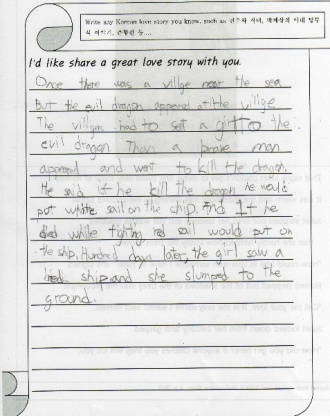 Write any Korean love story you know, such as 견우와 직녀, 박제상의 아내 망부
석 이야기, 춘향전 등....
I'd like share a great love story with you.
Once there was a villge near the sea
But the evil dragon appered at the villige
The villigers had to set a girl to the
evil dragon Than a brave man
appered and went to kill the dragon.
He said if he kill the dragon he would
put white sail on the ship. And If he
died while fighting red sail would put on
the ship. Hundred days later, the girl saw a
red ship and she slumped to the
ground.